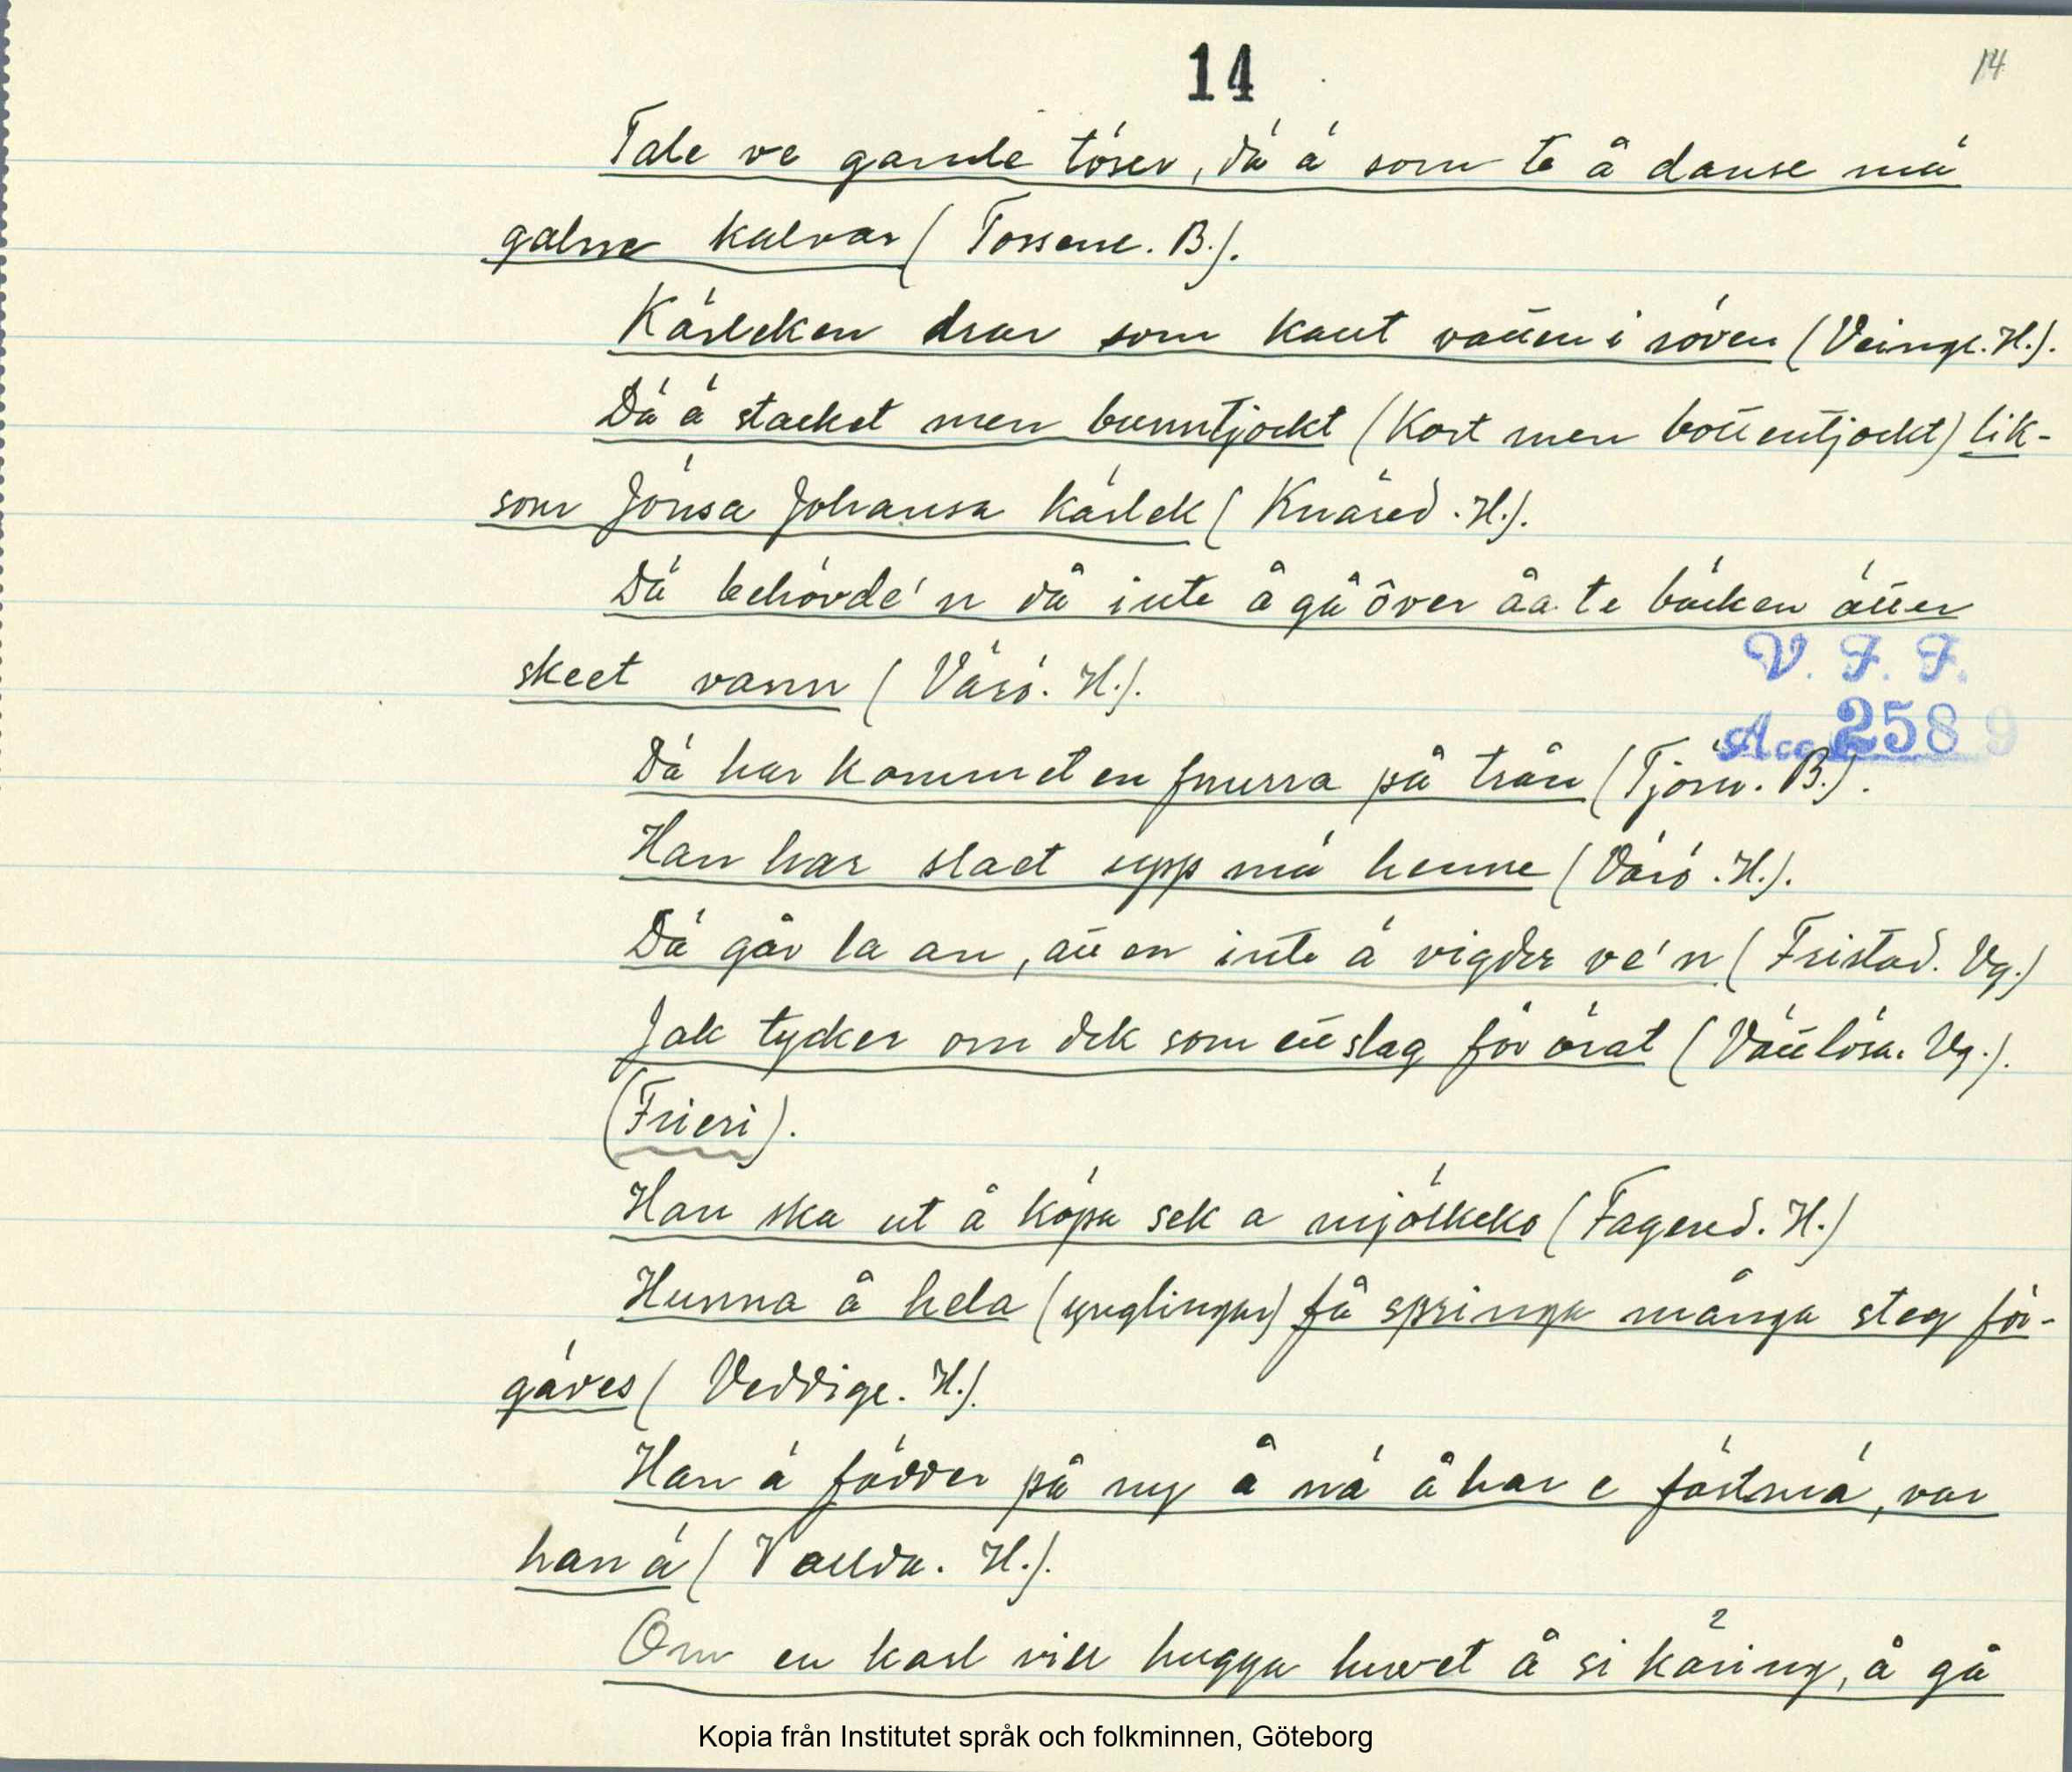 14
14
Tale ve gamle töser, dä ä som te å danse mä
galne kalvar (Tossene. B.).
Kärleken drar som katt vatten i röven (Veinge. H.).
Dä ä stacket men bunntjockt (Kort men bottentjockt) lik-
som Jönsa Johansa kärlek (Knäred. H.).
Dä behövde'n då inte å gå över åa te bäcken ätter
skeet vann (Värö. H.).
V. F. F.
Acc 2589
Dä har kommet en fnurra på trån (Tjörn. B.).
Han har slaet upp mä henne (Värö. H.).
Dä går la an, att en inte ä vigder ve'n (Fristad. Vg.)
Jak tycker om dek som ett slag för örat (Vättlösa. Vg.).
(Frieri).
Han ska ut å köpa sek a mjölkeko (Fagered. H.)
Hunna å hela (ynglingar) få springa många steg för-
gäves (Veddige. H.).
Han ä födder på ny å nä å har e fästmö, var
han ä (Vallda. H.).
Om en karl vill hugga huvet å si käring, å gå
Kopia från Institutet språk och folkminnen, Göteborg